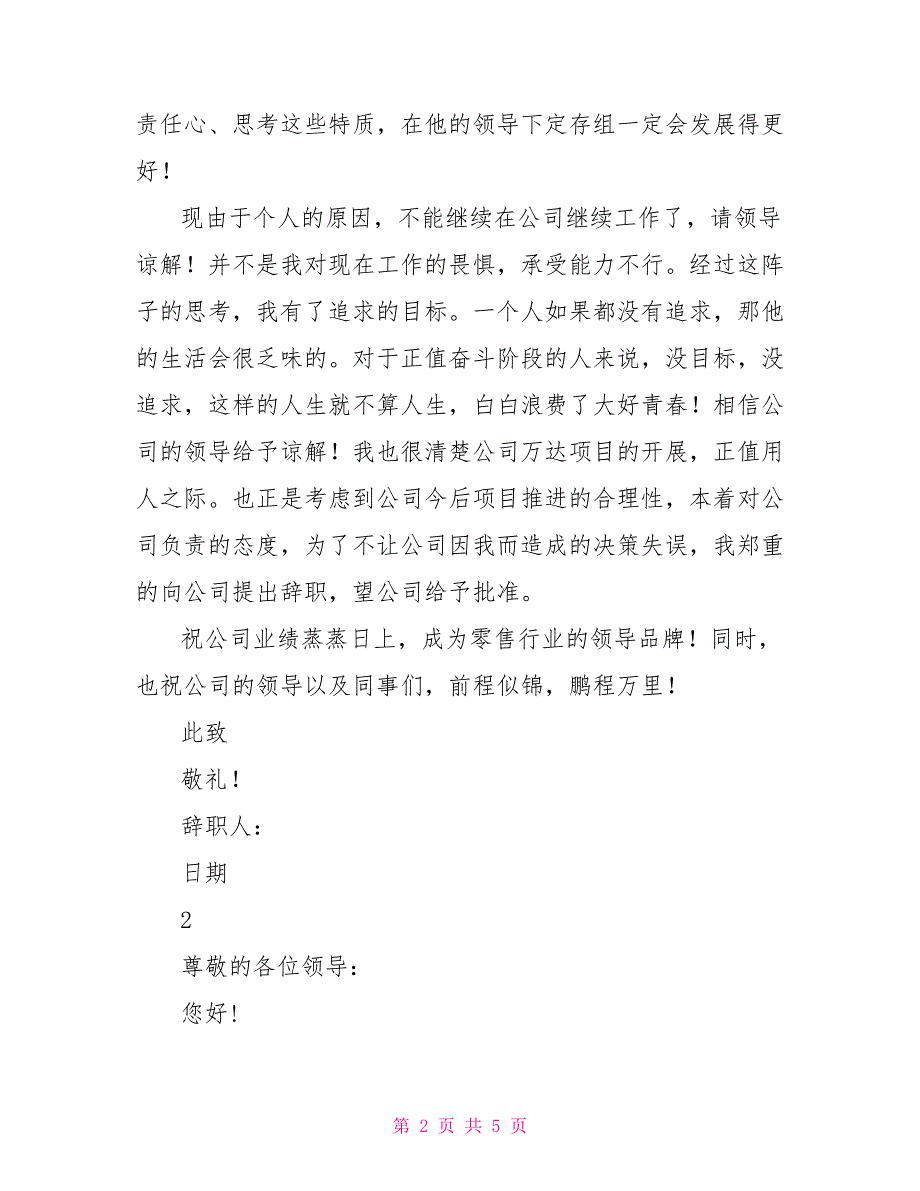 责任心、思考这些特质，在他的领导下定存组一定会发展得更
好！
现由于个人的原因，不能继续在公司继续工作了，请领导
谅解！并不是我对现在工作的畏惧，承受能力不行。经过这阵
子的思考，我有了追求的目标。一个人如果都没有追求，那他
的生活会很乏味的。对于正值奋斗阶段的人来说，没目标，没
追求，这样的人生就不算人生，白白浪费了大好青春！相信公
司的领导给予谅解！我也很清楚公司万达项目的开展，正值用
人之际。也正是考虑到公司今后项目推进的合理性，本着对公
司负责的态度，为了不让公司因我而造成的决策失误，我郑重
的向公司提出辞职，望公司给予批准。
祝公司业绩蒸蒸日上，成为零售行业的领导品牌！同时，
也祝公司的领导以及同事们，前程似锦，鹏程万里！
此致
敬礼！
辞职人：
日期
2
尊敬的各位领导：
您好！
第 2 页 共 5 页